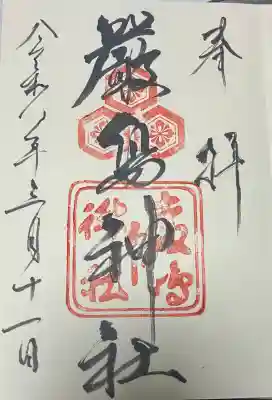 奉拝
厳島神社
令和八年三月十一日
厳島神社